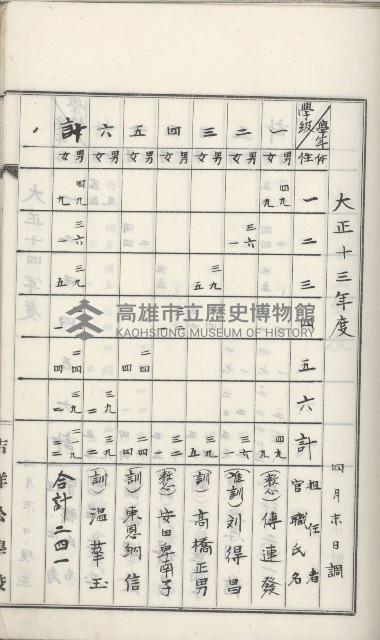 大正十三年度 四月末日調
學年 學級 性 一 二 三 四 五 六 計 担任者 官職氏名
一 男 四九 四九 傳連發
女 九 九
二 男 三六 三六 (准訓) 刘得昌
女 一 一
三 男 三九 三九 (訓) 高橋正男
女 五 五
四 男 三二 安田卑南子
女 一
五 男 二四 二四 (訓) 東恩納信
女 四 四
六 男 三九 三九 (訓) 温華玉
女 二 二
計 男 四九 三六 三九 二四 三九 二一九 合計二四一
女 九 一 五 四 二 二二
高雄市立歷史博物館
KAOHSIUNG MUSEUM OF HISTORY